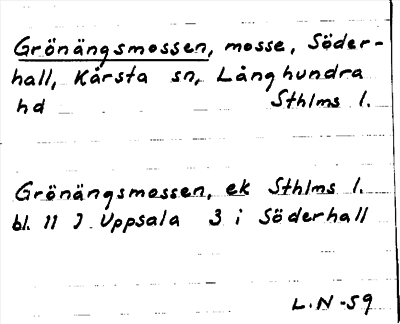 Grönängsmossen, mosse, Söder-
hall, Kårsta sn, Långhundra
hd Sthlms l.
Grönängsmossen, ek Sthlms l.
bl. 11 J Uppsala 3 i Söderhall
L.N-59